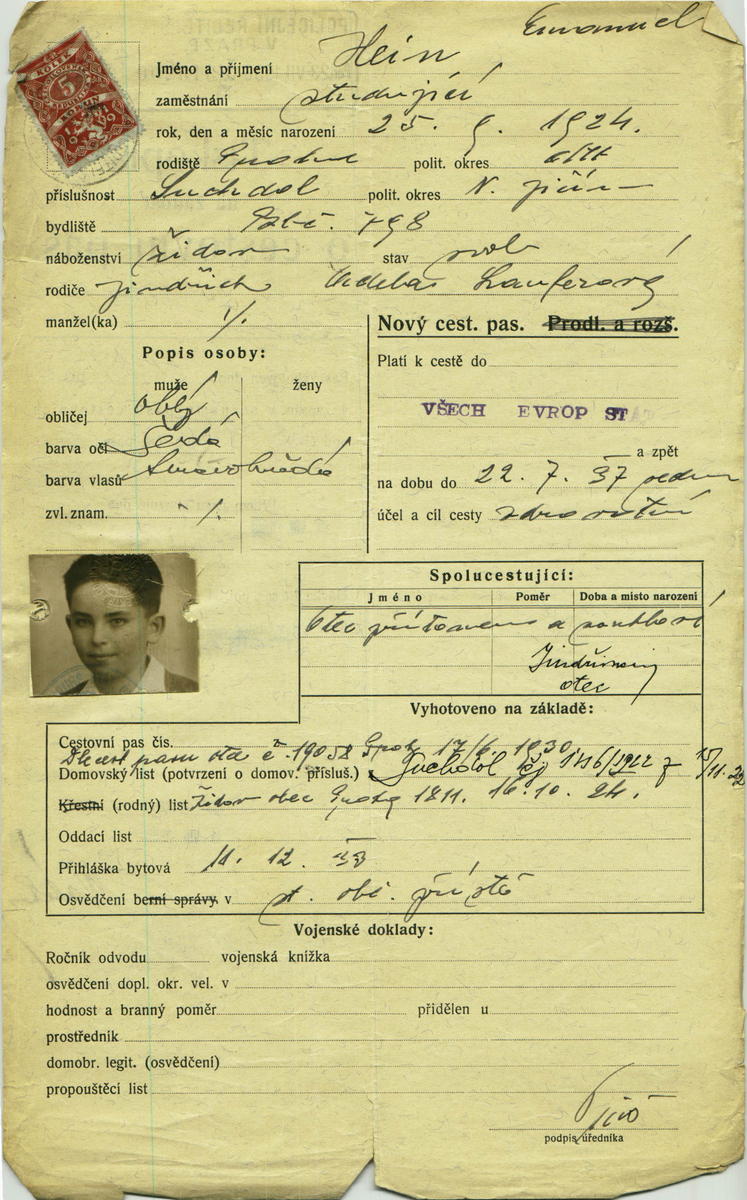 Emanuel
Jméno a příjmení Hein
zaměstnání studující
rok, den a měsíc narození 25. 9. 1924.
rodiště polit. okres
příslušnost Suchdol polit. okres N. Jičín
bydliště 798
náboženství židov stav svob
rodiče Jindřich Lauferová
manžel(ka) ./.
Popis osoby:
muže ženy
obličej oblý
barva očí šedá
barva vlasů tmavohnědá
zvl. znam. ./.
Nový cest. pas. Prodl. a rozš.
Platí k cestě do
VŠECH EVROP ST
a zpět
na dobu do 22. 7. 37
účel a cíl cesty zdravotní
Spolucestující:
Jméno Poměr Doba a místo narození
Otec přítomen a souhlasí
otec
Vyhotoveno na základě:
Cestovní pas čís. č. 19058 17/6. 1930
Domovský list (potvrzení o domov. přísluš.) Suchdol čj 146/1922 z 15/11.22
Křestní (rodný) list židov obec 1811. 16. 10. 24.
Oddací list
Přihláška bytová 11. 12. 33
Osvědčení berní správy v
Vojenské doklady:
Ročník odvodu vojenská knížka
osvědčení dopl. okr. vel. v
hodnost a branný poměr přidělen u
prostředník
domobr. legit. (osvědčení)
propouštěcí list
podpis úředníka